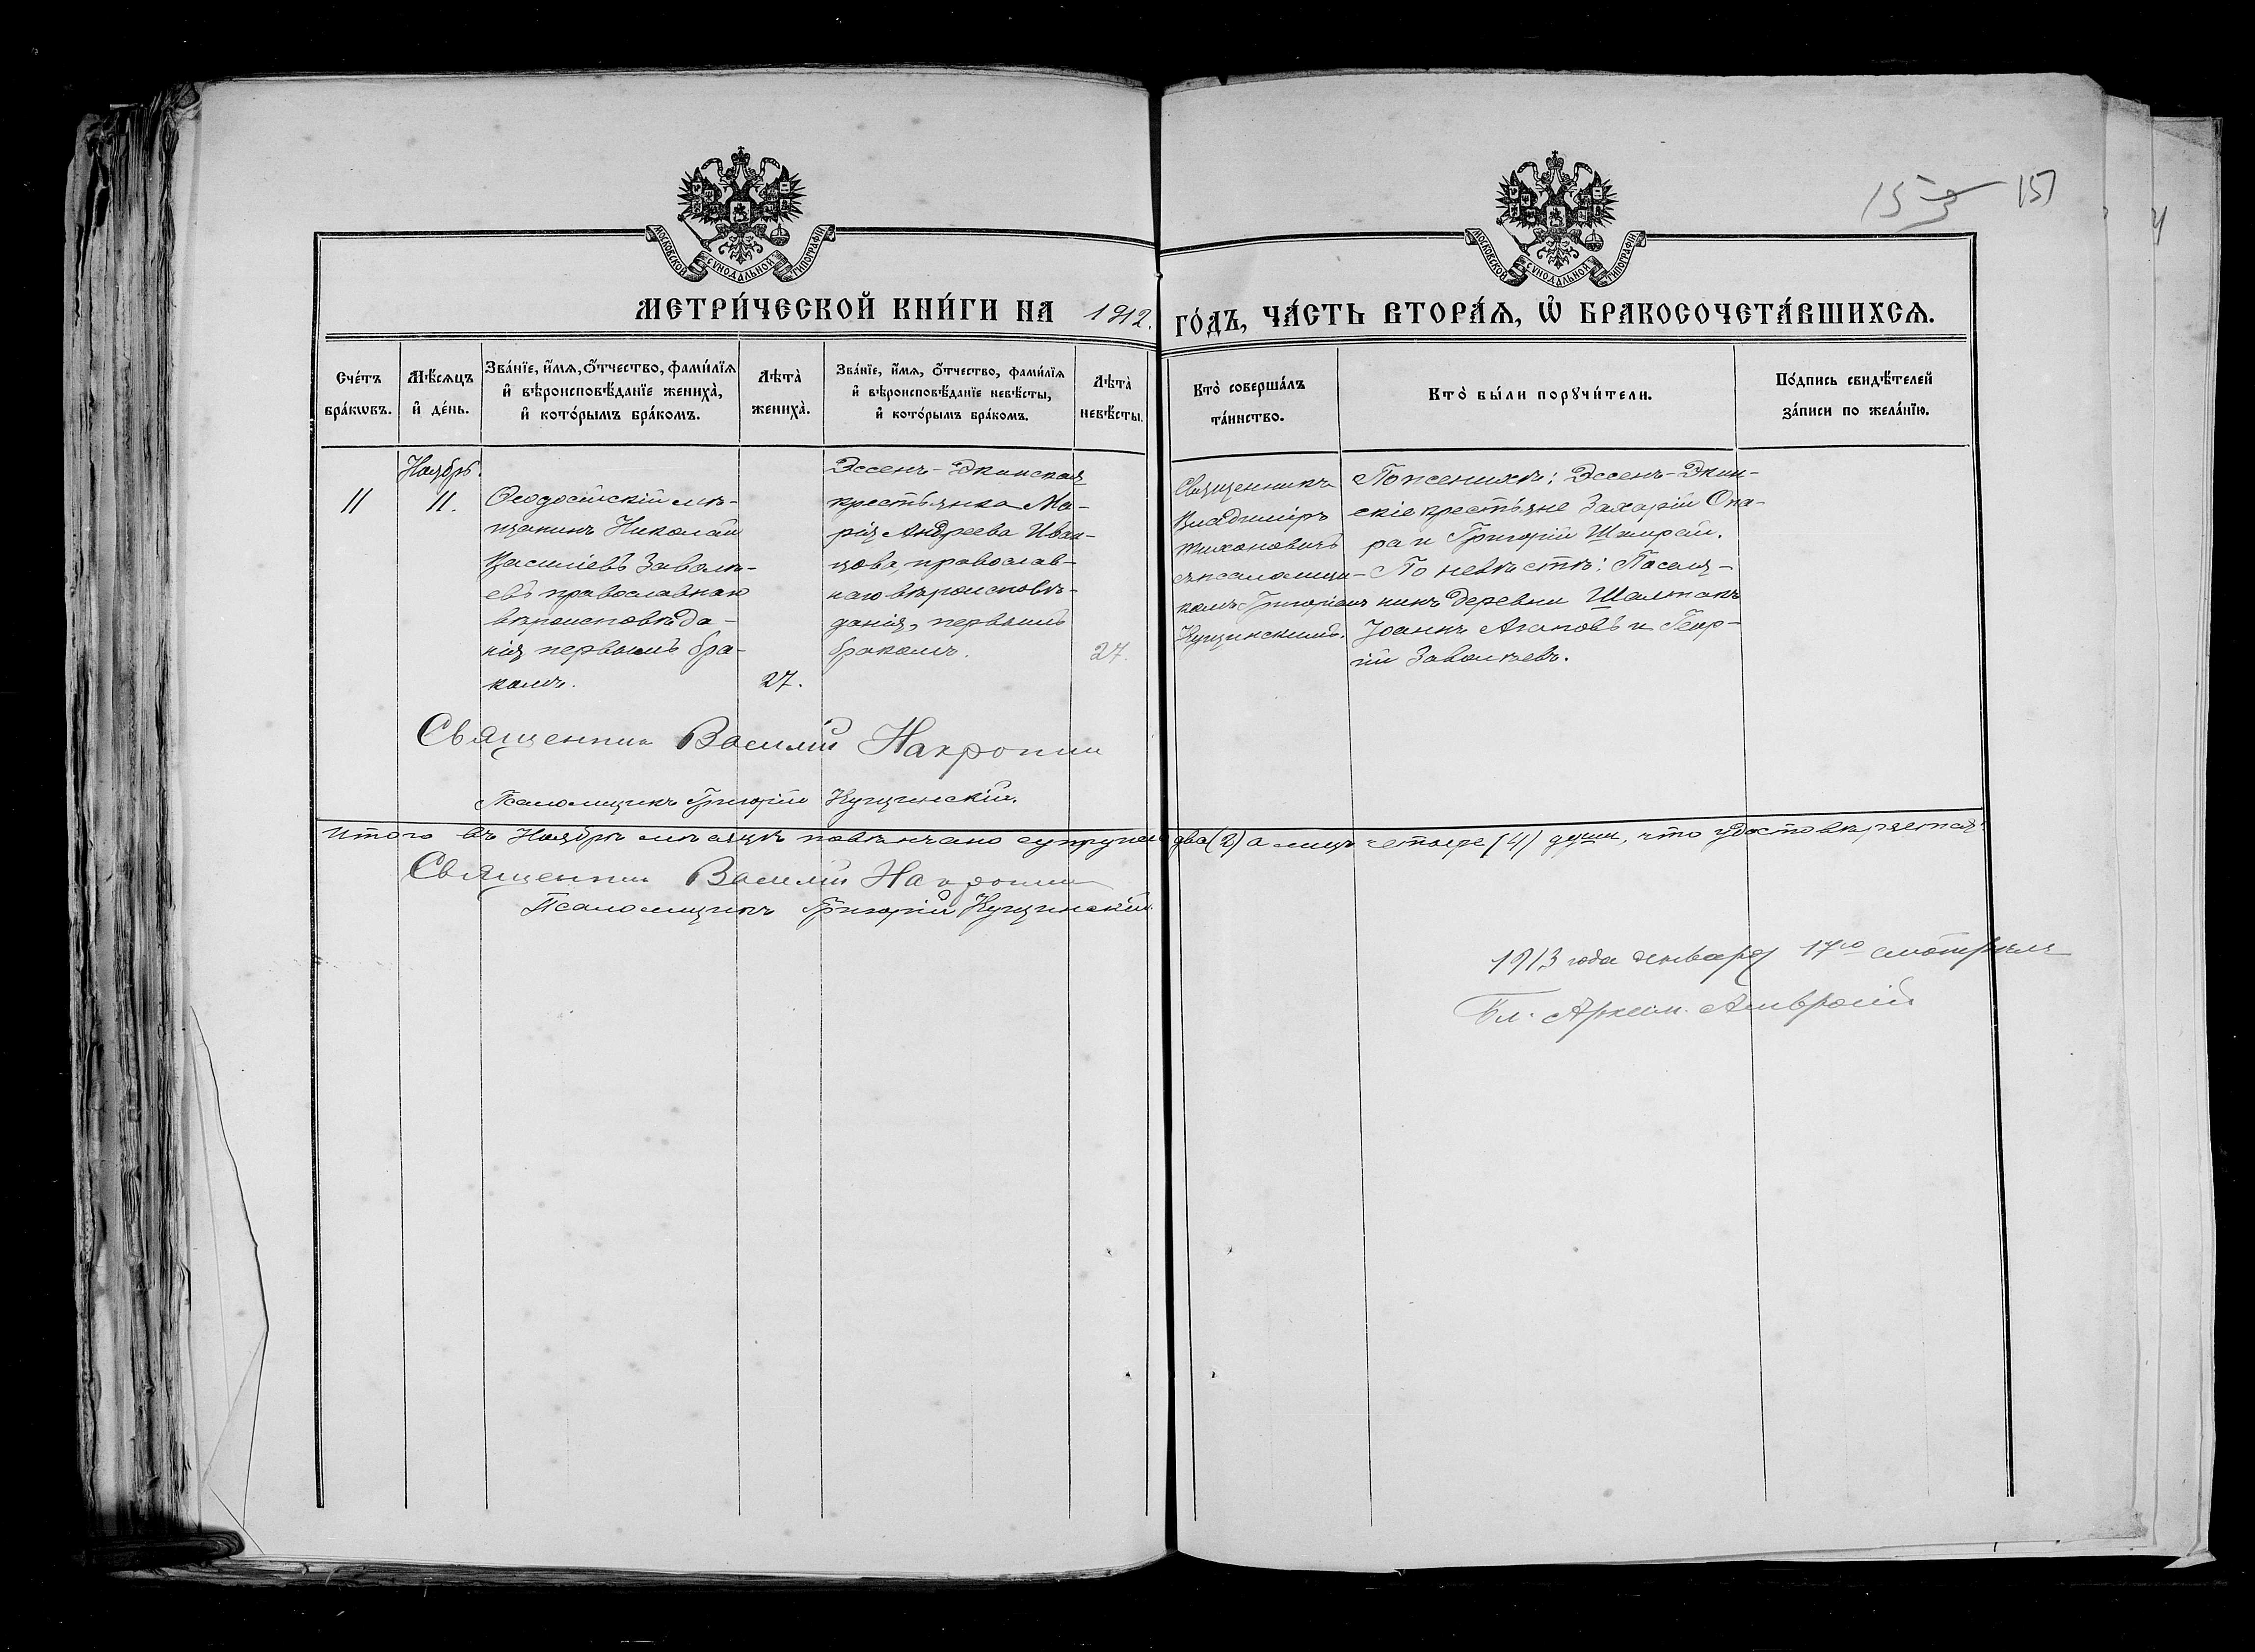 МОСКОВСКОЙ СУНОДАЛЬНОЙ ТИПОГРАФІИ
МОСКОВСКОЙ СУНОДАЛЬНОЙ ТИПОГРАФІИ
153 151
МЕТРИ́ЧЕСКОЙ КНИ́ГИ НА 1912. ГО́ДЪ, ЧА́СТЬ ВТОРА́Ѧ, Ѽ БРАКОСОЧЕТА́ВШИХСѦ.
Сче́тъ бра́кѡвъ.
Мѣ́сѧцъ и҆ де́нь.
Зва́нїе, и҆́мѧ, ѻ҆́тчество, фами́лїѧ и҆ вѣроисповѣ́данїе жениха̀, и҆ кото́рымъ бра́комъ.
Лѣта̀ жениха̀.
Зва́нїе, и҆́мѧ, ѻ҆́тчество, фами́лїѧ и҆ вѣроисповѣ́данїе невѣ́сты, и҆ кото́рымъ бра́комъ.
Лѣта̀ невѣ́сты.
Кто̀ соверша́лъ та́инство.
Кто̀ бы́ли порꙋчи́тели.
По́дпись свидѣ́телей за́писи по жела́нїю.
Ноябрь.
11
11.
Ѳеодосійскій мѣ-
щанинъ Николай
Василіевъ Заволж-
евъ православнаго
вѣроисповѣда-
нія, первымъ бра-
комъ.
27.
Эссенъ-Экинская
крестьянка Ма-
рія Андреева Иван-
цова, православ-
наго вѣроисповѣ-
данія, первымъ
бракомъ.
27.
Священникъ
Владиміръ
Тихоновичъ
съ псаломщи-
комъ Григоріемъ
Кущинскимъ.
По женихѣ: Эссенъ-Экин-
скіе крестьяне Захарій Опа-
ра и Григорій Шамрай.
По невѣстѣ: Поселя-
нинъ деревни
Іоаннъ Агаповъ и Геор-
гій
Священникъ Василій
Псаломщикъ Григорій Кущинскій.
Итого въ Ноябрѣ мѣсяцѣ повѣнчано супруж. два (2) а лицъ четыре (4) души, что удостовѣряется:
Священникъ Василій
Псаломщикъ Григорій Кущинскій.
1913 года января 17го смотрѣлъ
Бл. Архим. Амвросій